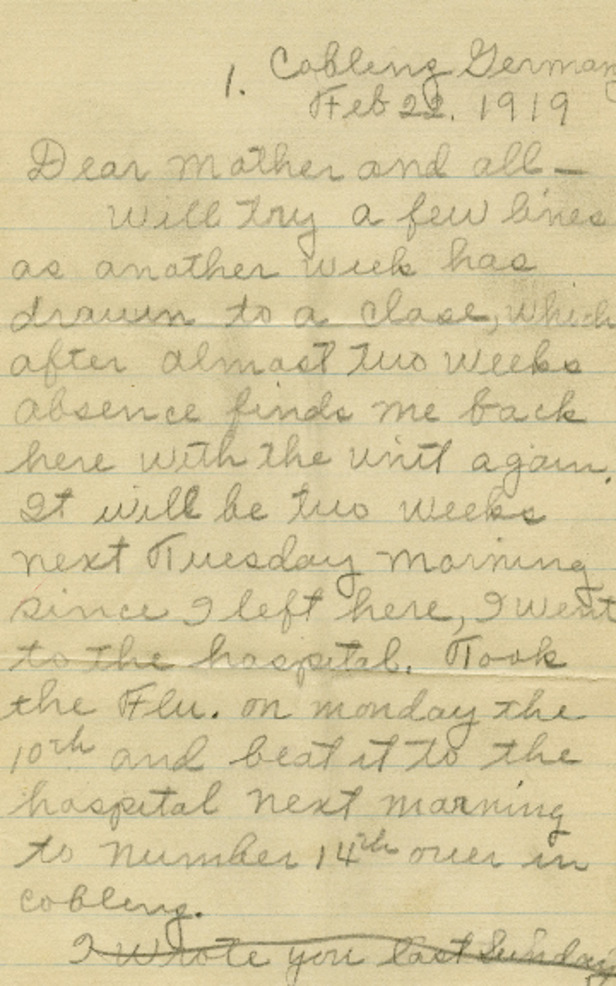 1. Coblenz German
Feb 22. 1919
Dear Mother and all—
Will try a few lines
as another week has
drawn to a close, which
after almost two weeks
absence finds me back
here with the unit again.
It will be two weeks
next Tuesday morning
since I left here, I went
to the hospital. Took
the Flu. on monday the
10th and beat it to the
hospital next morning
to number 14th over in
Coblenz.
I Wrote you last Sunday